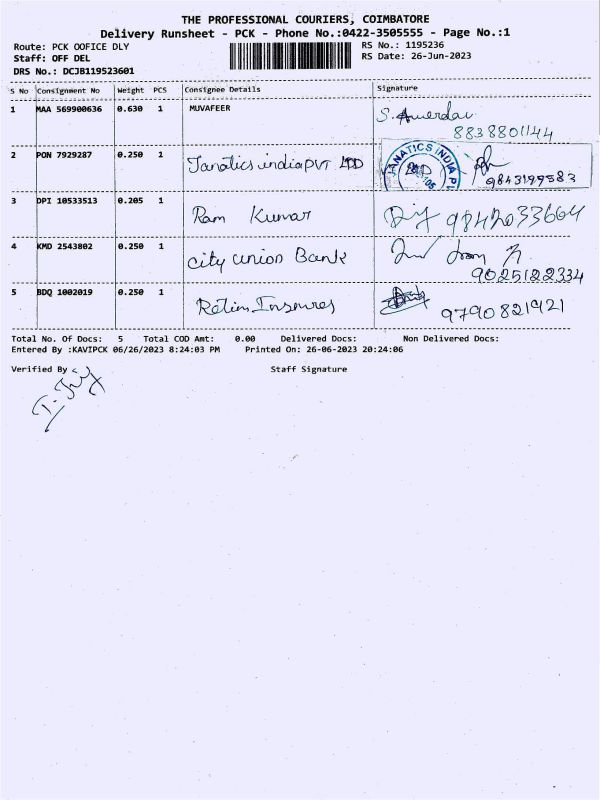 THE PROFESSIONAL COURIERS, COIMBATORE
Delivery Runsheet - PCK - Phone No.:0422-3505555 - Page No.:1
Route: PCK OOFICE DLY RS No.: 1195236
Staff: OFF DEL RS Date: 26-Jun-2023
DRS No.: DCJB119523601
S No Consignment No Weight PCS Consignee Details Signature
1 MAA 569900636 0.630 1 MUVAFEER S.
8838801144
2 PON 7929287 0.250 1 Janatics india PVT LTD JANATICS INDIA PV
9843199583
3 DPI 10533513 0.205 1 Ram Kumar 9842033664
4 KMD 2543802 0.250 1 city union Bank
9025122334
5 BDQ 1002019 0.250 1 9790821921
Total No. Of Docs: 5 Total COD Amt: 0.00 Delivered Docs: Non Delivered Docs:
Entered By :KAVIPCK 06/26/2023 8:24:03 PM Printed On: 26-06-2023 20:24:06
Verified By Staff Signature